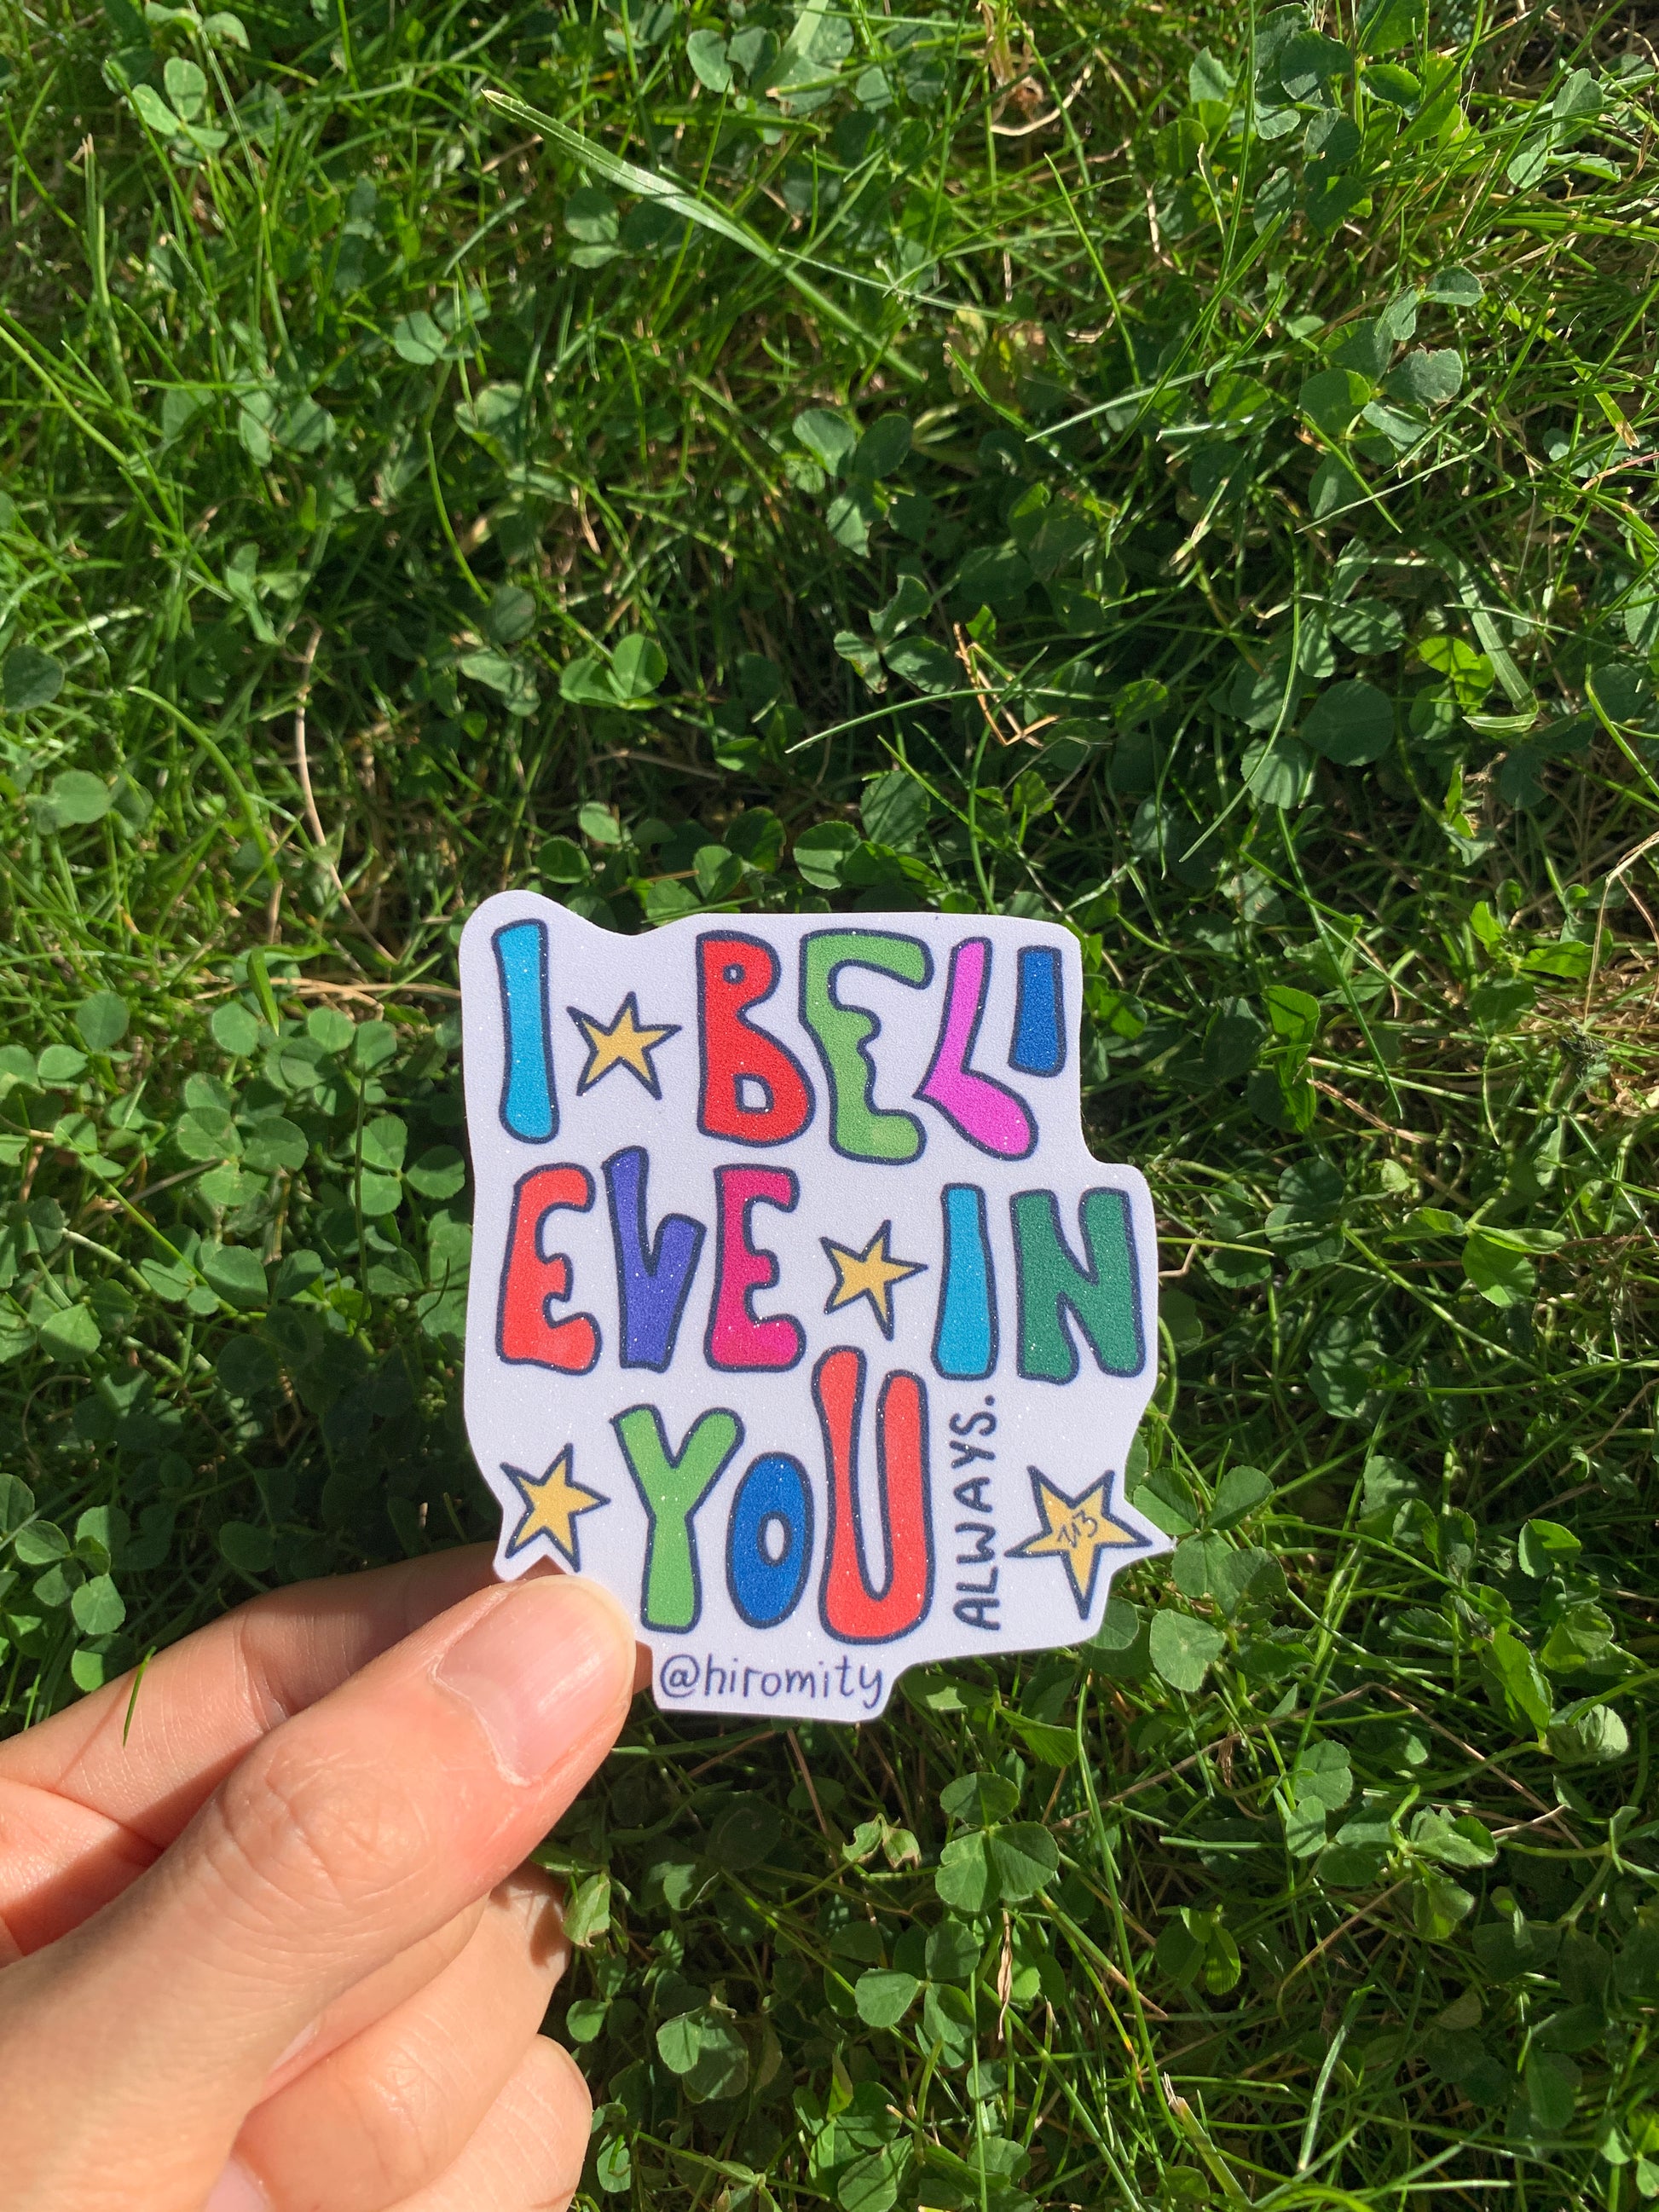 I BELI
EVE IN
YOU
ALWAYS.
@hiromity